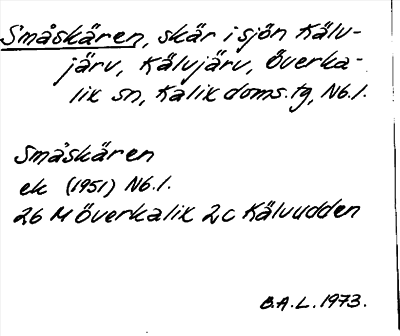 Småskären, skär i sjön Kälv-
järv, Kälvjärv, Överka-
lix sn, Kalix doms.tg, Nb.l.
Småskären
ek (1951) Nb.l.
26 M Överkalix 2c Kälvudden
B.A.L. 1973.